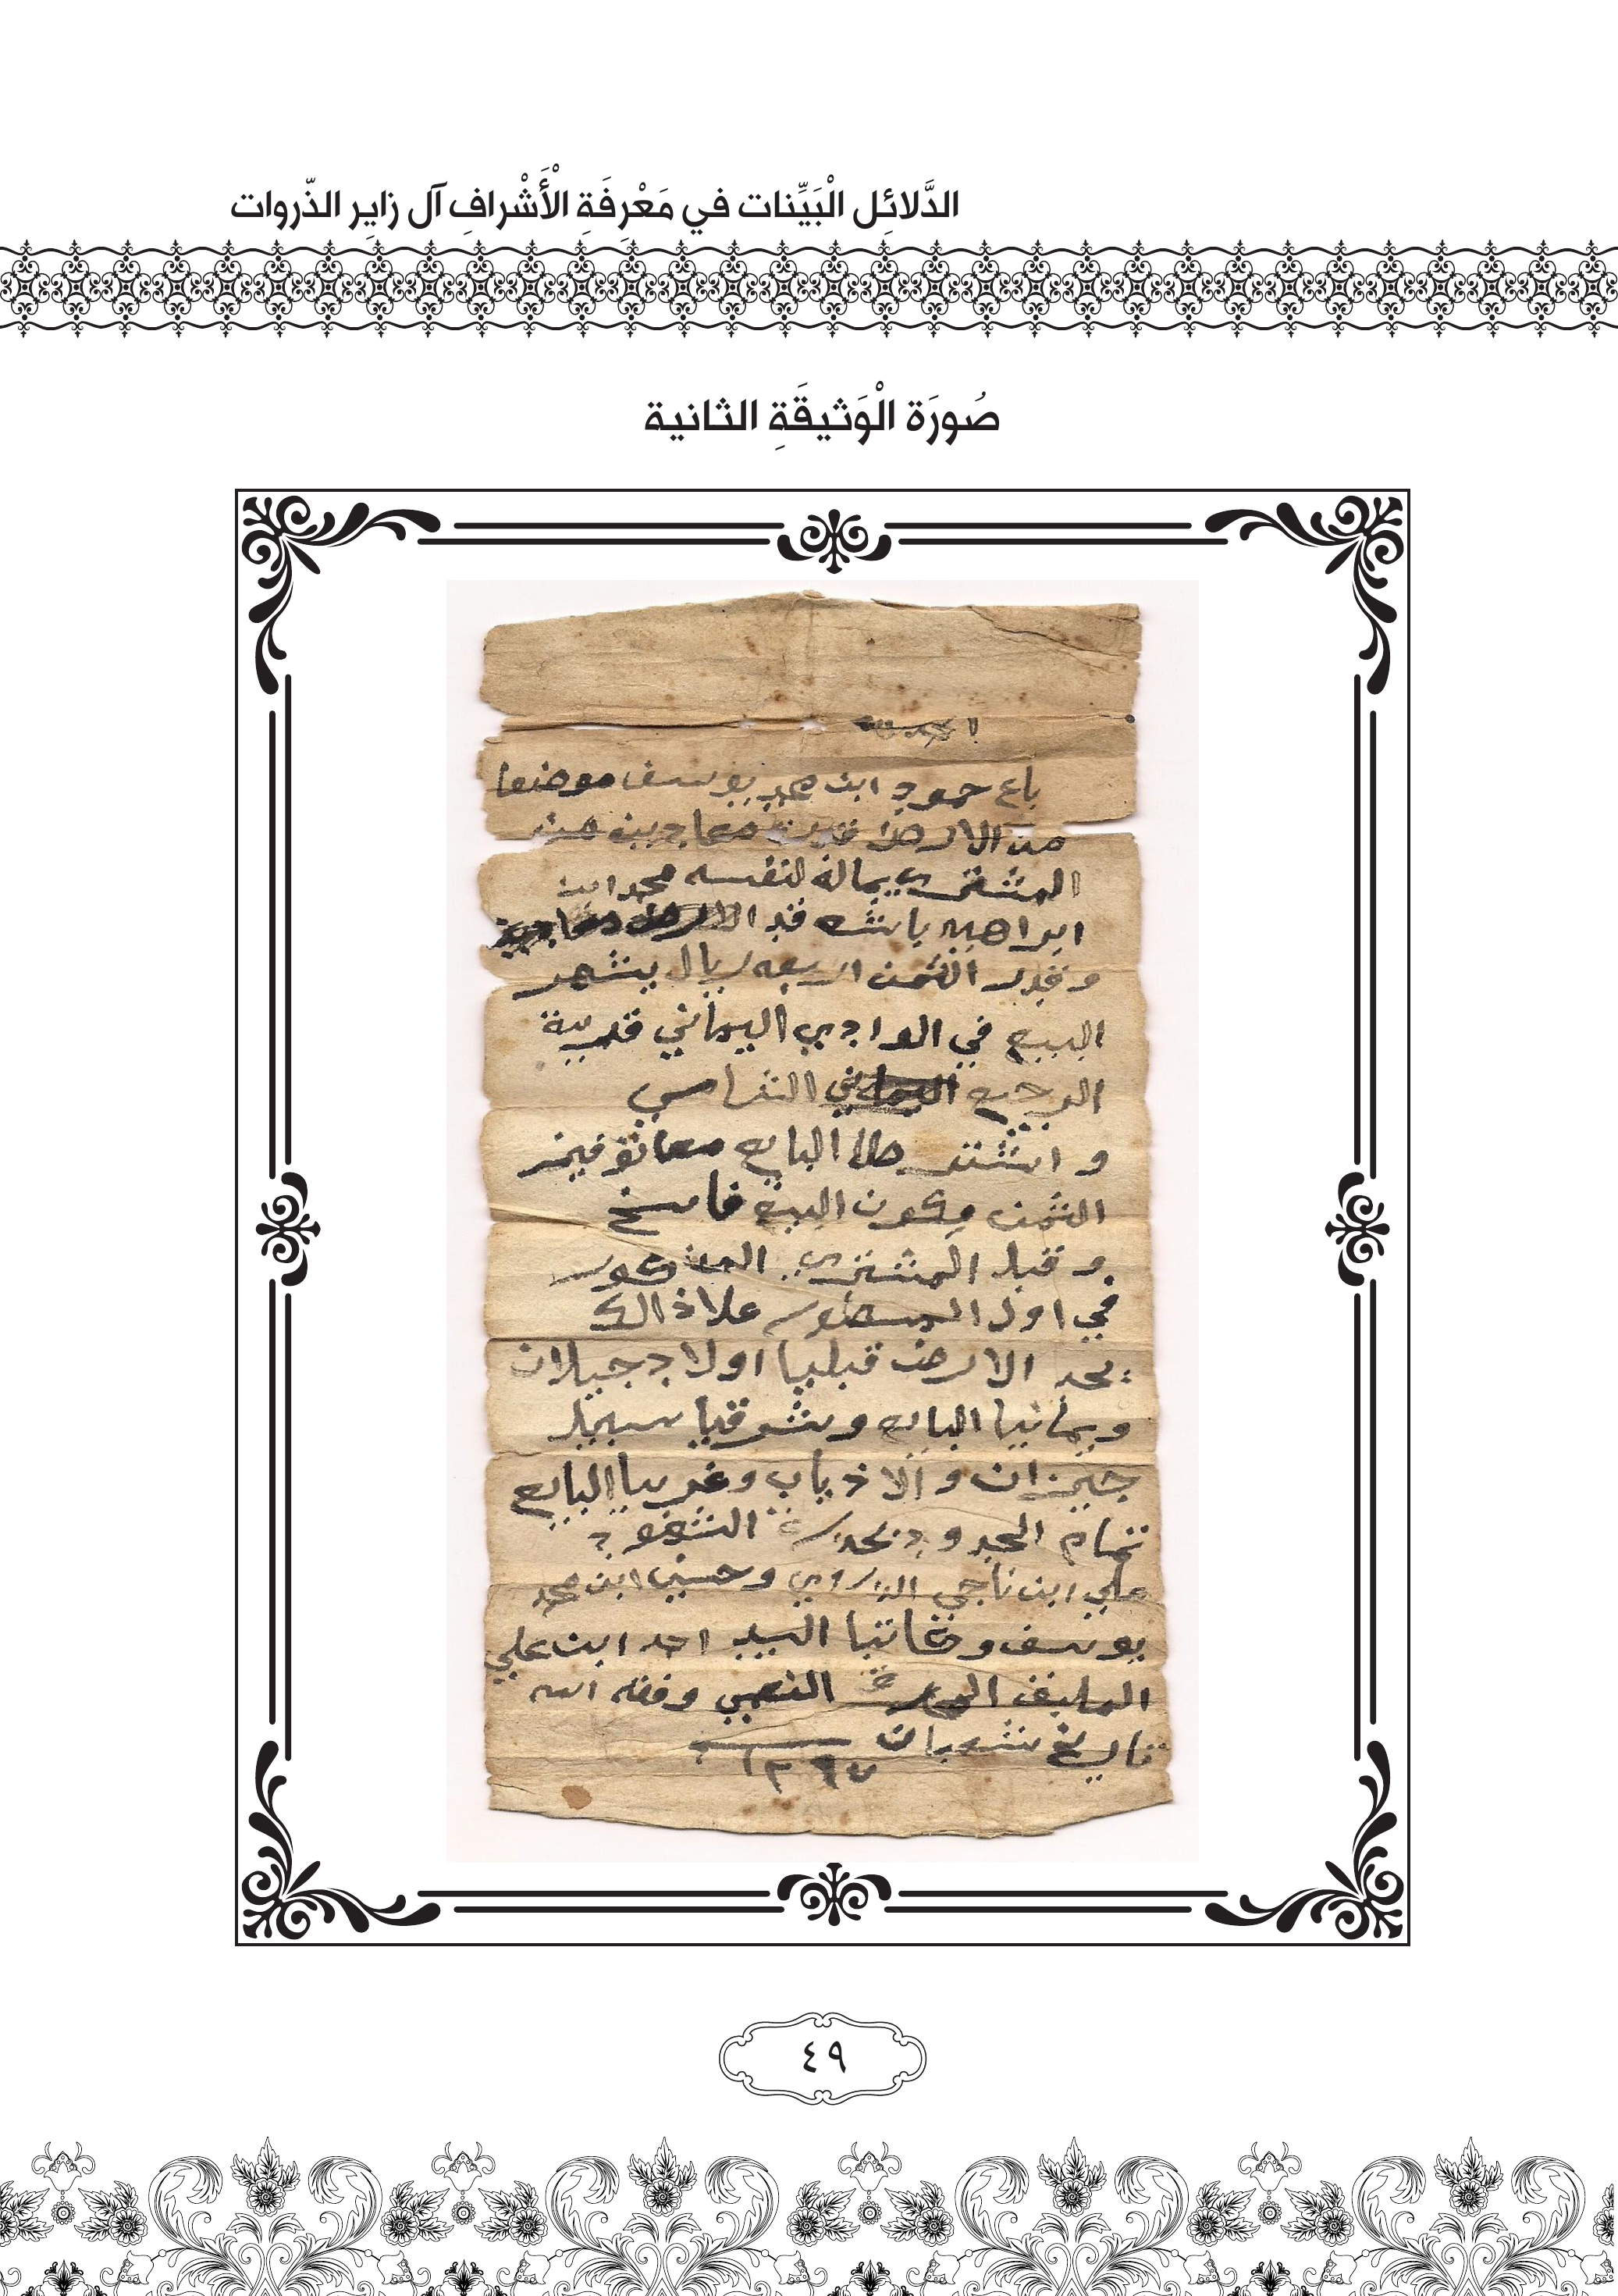 الدَّلائِل الْبَيِّنات في مَعْرِفَةِ الْأَشْرافِ آل زايِر الذّروات
صُورَة الْوَثيقَةِ الثانية
الحمد لله
باع حمود ابن محمد يوسف موضعا
من الارض معاد
المشتري بماله لنفسه محمد ابن
ابراهيم
وقدر الثمن اربعه ريال بشهر
البيع في الوادي اليماني قريبة
الرجيع
و اشترط البايع معا توفير
الثمن يكون البيع فاسخ
و قبل المشتري المذكور
في اول المسطور علا ذالك
يحد الارض قبليا اولاد جبلان
ويمانيا البايع وشرقيا سبيل
جيزان والاذياب وغربيا البايع
تمام الحدود الشهود
علي ابن ناجي الذروي وحسين ابن محمد
يوسف وكاتبا السيد احمد ابن علي
النعمي وفقه الله
تاريخ شعبان
١٣٦٧
٤٩